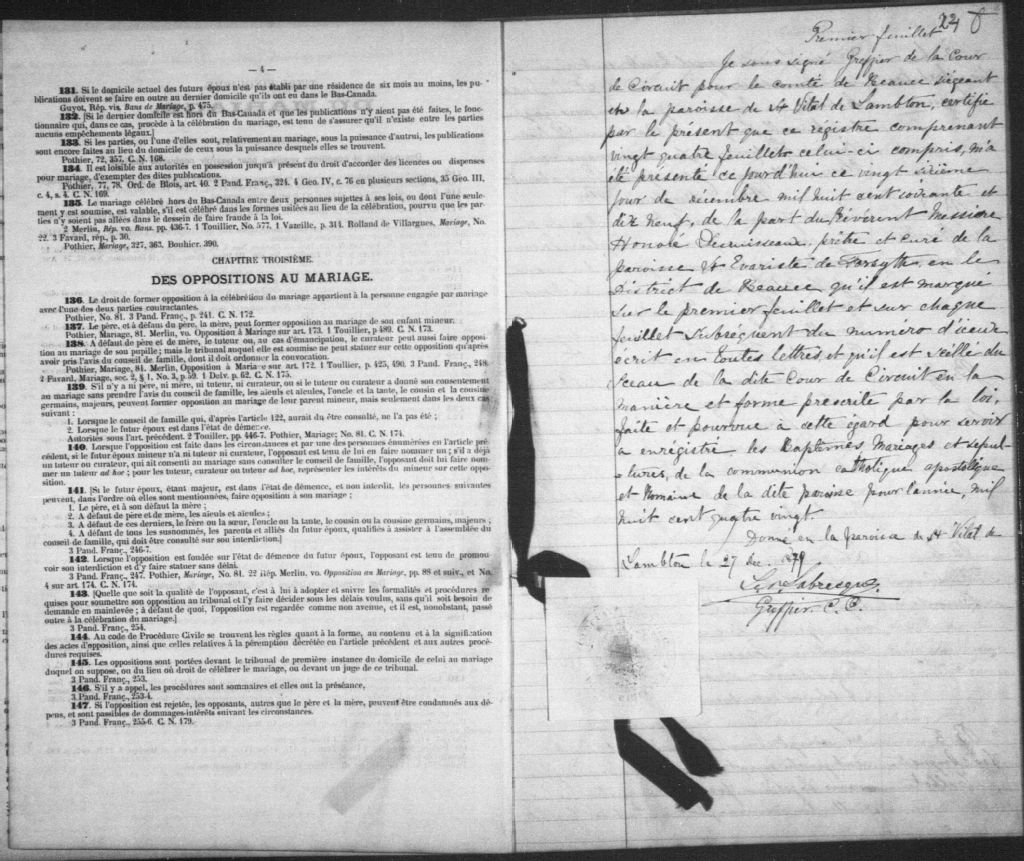 — 4 —
131. Si le domicile actuel des futurs époux n'est pas établi par une résidence de six mois au moins, les pu-
blications doivent se faire en outre au dernier domicile qu'ils ont eu dans le Bas-Canada.
Guyot, Rép. vis. Bans de Mariage, p. 475.
132. [Si le dernier domicile est hors du Bas-Canada et que les publications n'y aient pas été faites, le fonc-
tionnaire qui, dans ce cas, procède à la célébration du mariage, est tenu de s'assurer qu'il n'existe entre les parties
aucuns empêchements légaux.]
133. Si les parties, ou l'une d'elles sont, relativement au mariage, sous la puissance d'autrui, les publications
sont encore faites au lieu du domicile de ceux sous la puissance desquels elles se trouvent.
Pothier, 72, 357. C. N. 168.
134. Il est loisible aux autorités en possession jusqu'à présent du droit d'accorder des licences ou dispenses
pour mariage, d'exempter des dites publications.
Pothier, 77, 78. Ord. de Blois, art. 40. 2 Pand. Franç., 324. 4 Geo. IV, c. 76 en plusieurs sections, 35 Geo. III,
c. 4, s. 4. C. N. 169.
135. Le mariage célébré hors du Bas-Canada entre deux personnes sujettes à ses lois, ou dont l'une seule-
ment y est soumise, est valable, s'il est célébré dans les formes usitées au lieu de la célébration, pourvu que les par-
ties n'y soient pas allées dans le dessein de faire fraude à la loi.
2 Merlin, Rép. vo. Bans. pp. 436-7. 1 Touillier, No. 577. 1 Vazeille, p. 314. Rolland de Villargues, Mariage, No.
22. 3 Favard, rép., p. 36.
Pothier, Mariage, 327, 363. Bouhier. 390.
CHAPITRE TROISIÈME.
DES OPPOSITIONS AU MARIAGE.
136. Le droit de former opposition à la célébration du mariage appartient à la personne engagée par mariage
avec l'une des deux parties contractantes.
Pothier, No. 81. 3 Pand. Franç., p. 241. C. N. 172.
137. Le père, et à défaut du père, la mère, peut former opposition au mariage de son enfant mineur.
Pothier, Mariage, 81. Merlin, vo. Opposition à Mariage sur art. 173. 1 Touillier, p 489. C. N. 173.
138. A défaut de père et de mère, le tuteur ou, au cas d'émancipation, le curateur peut aussi faire opposi-
tion au mariage de son pupille; mais le tribunal auquel elle est soumise ne peut statuer sur cette opposition qu'après
avoir pris l'avis du conseil de famille, dont il doit ordonner la convocation.
Pothier, Mariage, 81. Merlin, Opposition à Mariage sur art. 172. 1 Toullier, p. 425, 490. 3 Pand. Franç., 248.
2 Favard, Mariage, sec. 2, § 1, No. 3, p. 59. 1 Delv. p. 62. C. N. 175.
139. S'il n'y a ni père, ni mère, ni tuteur, ni curateur, ou si le tuteur ou curateur a donné son consentement
au mariage sans prendre l'avis du conseil de famille, les aïeuls et aïeules, l'oncle et la tante, le cousin et la cousine
germains, majeurs, peuvent former opposition au mariage de leur parent mineur, mais seulement dans les deux cas
suivant :
1. Lorsque le conseil de famille qui, d'après l'article 122, aurait du être consulté, ne l'a pas été ;
2. Lorsque le futur époux est dans l'état de démence.
Autorités sous l'art. précédent. 2 Touiller, pp. 446-7. Pothier, Mariage; No. 81. C. N. 174.
140. Lorsque l'opposition est faite dans les circonstances et par une des personnes énumérées en l'article pré-
cédent, si le futur époux mineur n'a ni tuteur ni curateur, l'opposant est tenu de lui en faire nommer un ; s'il a déjà
un tuteur ou curateur, qui ait consenti au mariage sans consulter le conseil de famille, l'opposant doit lui faire nom-
mer un tuteur ad hoc ; pour les tuteur, curateur ou tuteur ad hoc, représenter les intérêts du mineur sur cette oppo-
sition.
141. [Si le futur époux, étant majeur, est dans l'état de démence, et non interdit, les personnes suivantes
peuvent, dans l'ordre où elles sont mentionnées, faire opposition à son mariage ;
1. Le père, et à son défaut la mère ;
2. A défaut de père et de mère, les aïeuls et aïeules ;
3. A défaut de ces derniers, le frère ou la sœur, l'oncle ou la tante, le cousin ou la cousine germains, majeurs ;
4. A défaut de tous les susnommés, les parents et alliés du futur époux, qualifiés à assister à l'assemblée du
conseil de famille, qui doit être consulté sur son interdiction.]
3 Pand. Franç., 246-7.
142. Lorsque l'opposition est fondée sur l'état de démence du futur époux, l'opposant est tenu de promou-
voir son interdiction et d'y faire statuer sans délai.
3 Pand. Franç., 247. Pothier, Mariage, No. 81. 22 Rép. Merlin, vo. Opposition au Mariage, pp. 88 et suiv., et No.
4 sur art. 174. C. N. 174.
143. [Quelle que soit la qualité de l'opposant, c'est à lui à adopter et suivre les formalités et procédures re-
quises pour soumettre son opposition au tribunal et l'y faire décider sous les délais voulus, sans qu'il soit besoin de
demande en mainlevée ; à défaut de quoi, l'opposition est regardée comme non avenue, et il est, nonobstant, passé
outre à la célébration du mariage.]
3 Pand. Franç., 254.
144. Au code de Procédure Civile se trouvent les règles quant à la forme, au contenu et à la signification
des actes d'opposition, ainsi que celles relatives à la péremption décrétée en l'article précédent et aux autres procé-
dures requises.
145. Les oppositions sont portées devant le tribunal de première instance du domicile de celui au mariage
duquel on suppose, ou du lieu où droit de célébrer le mariage, ou devant un juge de ce tribunal.
3 Pand. Franç., 253.
146. S'il y a appel, les procédures sont sommaires et elles ont la préséance,
3 Pand. Franç., 253-4.
147. Si l'opposition est rejetée, les opposants, autres que le père et la mère, peuvent être condamnés aux dé-
pens, et sont passibles de dommages-intérêts suivant les circonstances.
3 Pand. Franç., 255-6. C. N. 179.
Premier feuillet
Je sous signé Greffier de la Cour
de Circuit pour le comté de Beauce siégeant
en la paroisse de St Vital de Lambton, certifie
par le présent que ce régistre comprenant
vingt quatre feuillets celui-ci compris, m'a
été présenté ce jourd'hui ce vingt sixième
jour de décembre mil huit cent soixante et
dix neuf, de la part du Révérent Messire
Honoré Desruisseaux, prêtre et curé de la
paroisse St Evariste de Forsyth, en le
District de Beauce qu'il est marqué
sur le premier feuillet et sur chaque
feuillet subséquent du numéro d'iceux
écrit en toutes lettres, et qu'il est scellé du
sceau de la dite Cour de Circuit en la
manière et forme prescrite par la loi,
faite et pourvue à cette égard pour servir
a enregistré les Baptêmes, Mariages et sépul-
tures, de la communion catholique apostolique
et Romaine de la dite paroisse pour l'année, mil
huit cent quatre vingt
Donné en la paroisse de St Vital de
Lambton le 27 Dec. 1879
Geo. Labrecque
Greffier. C. C.